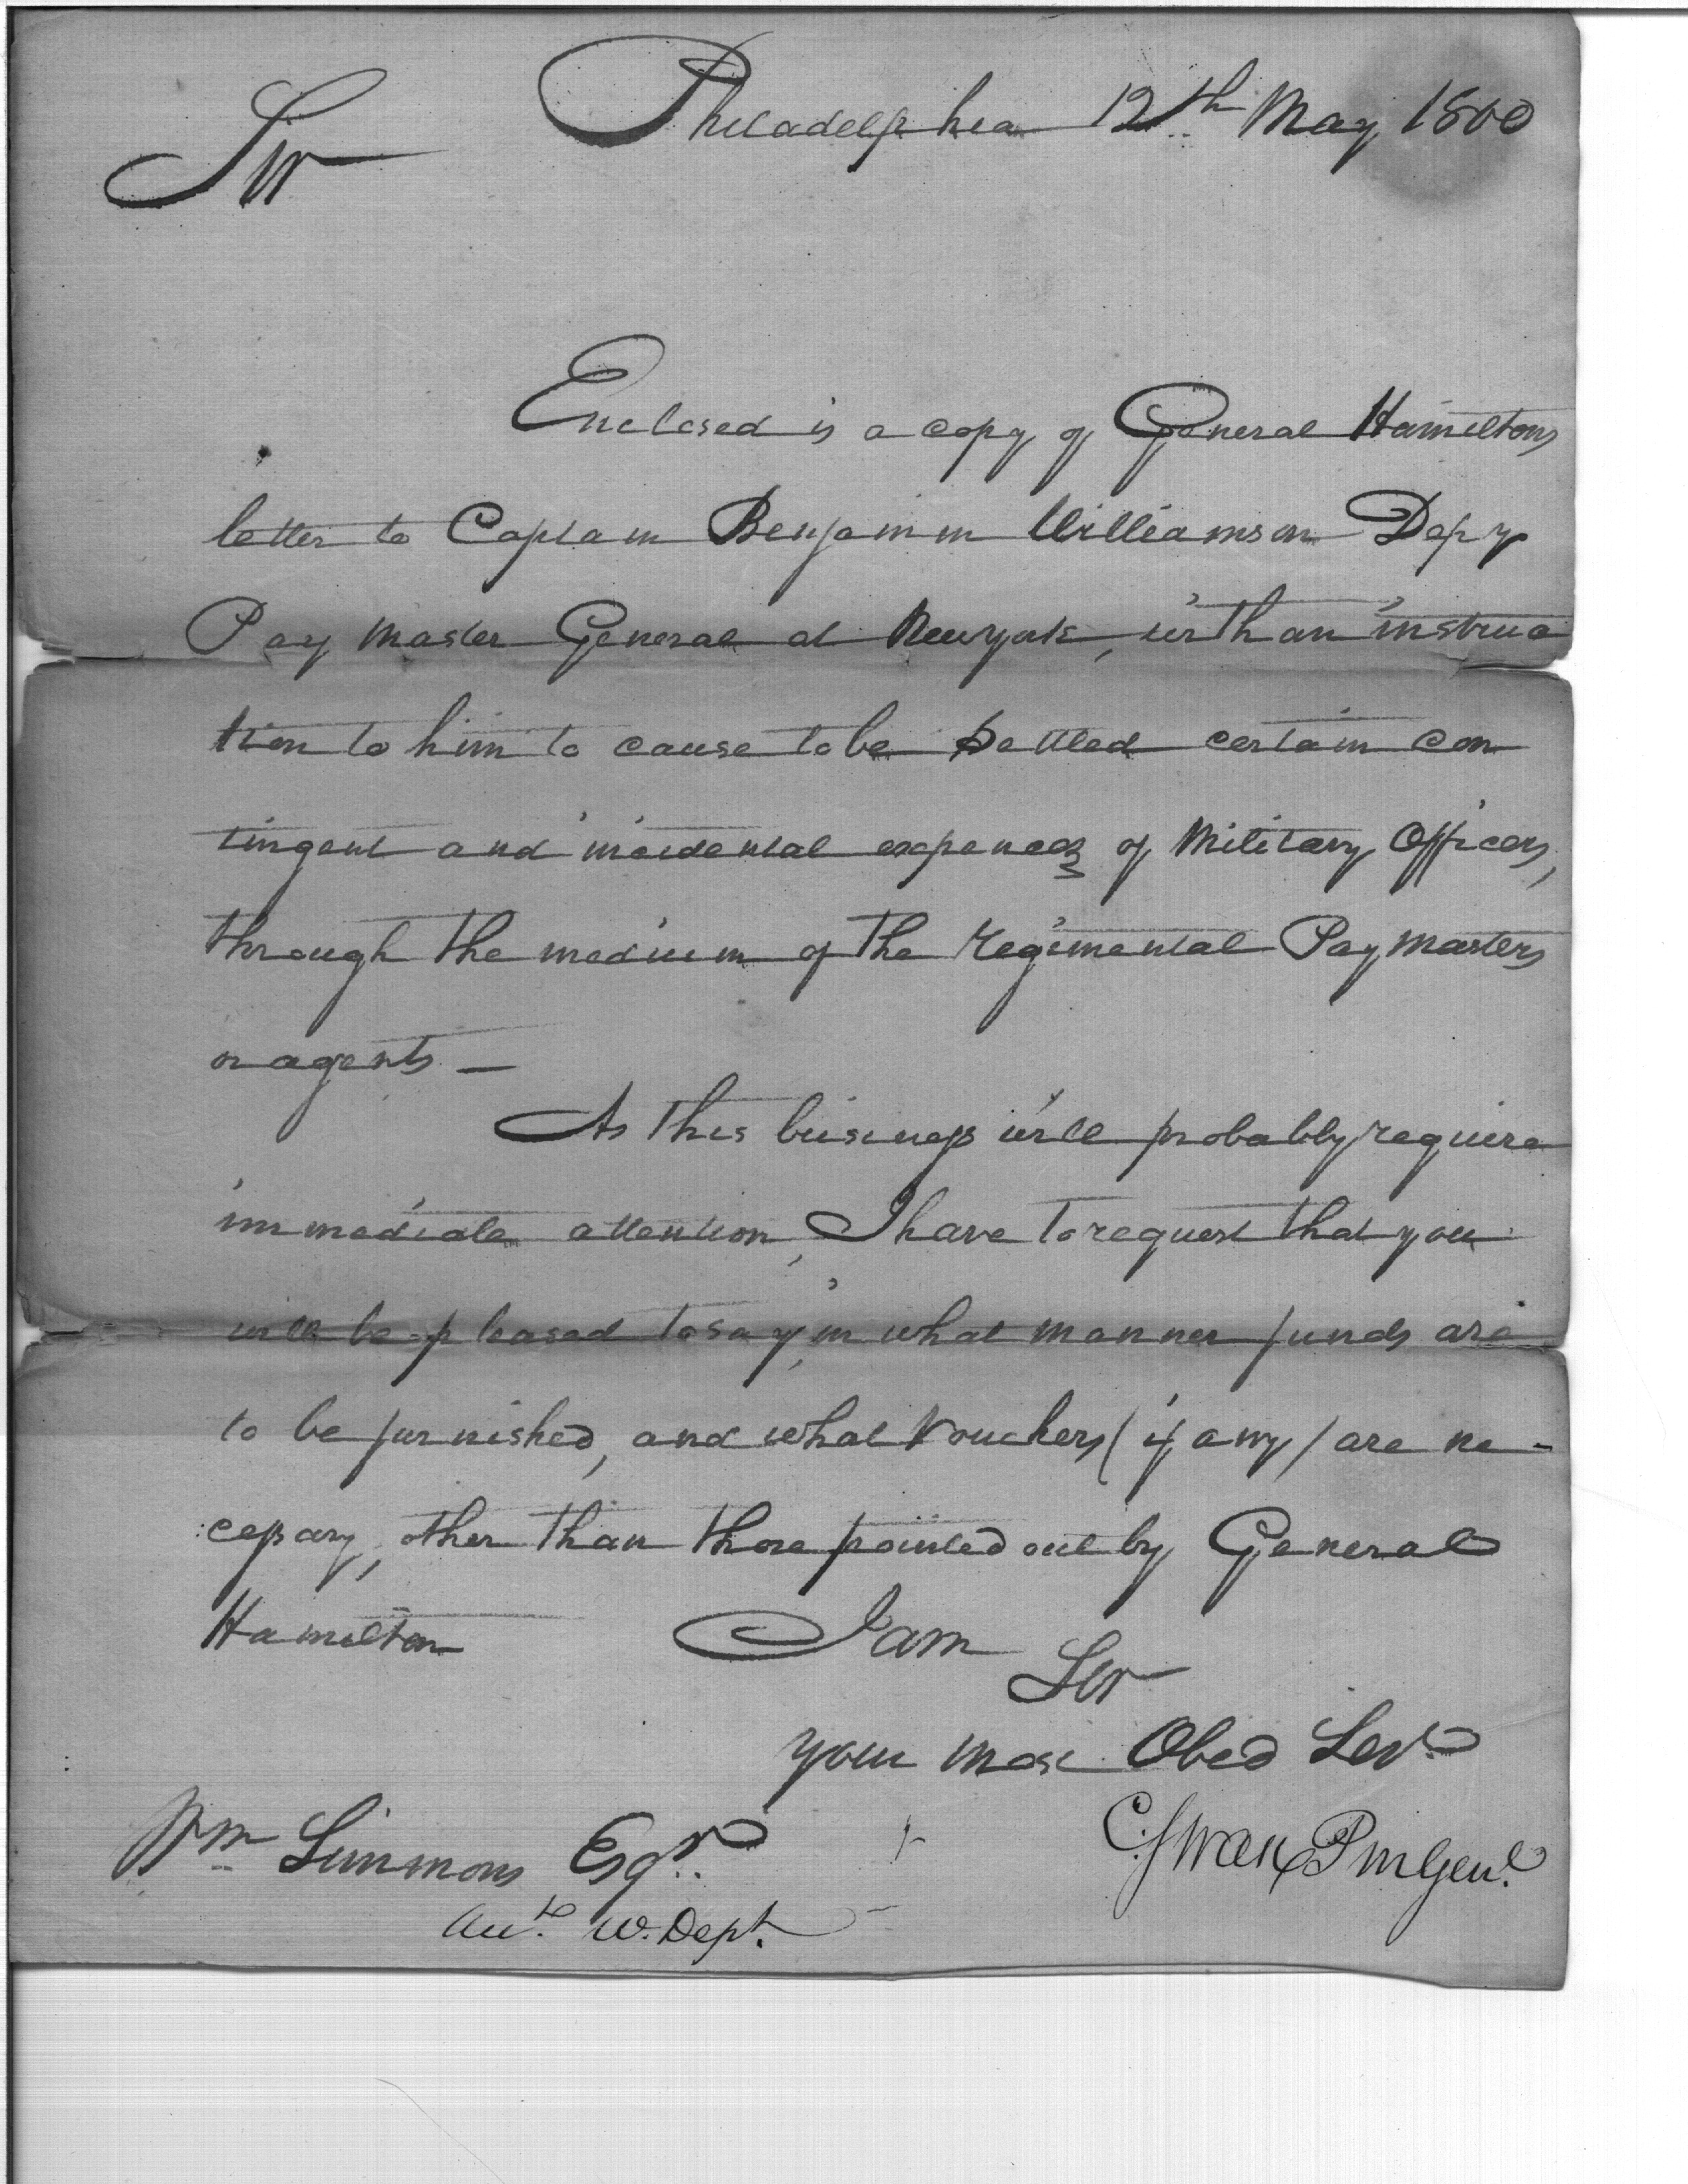 Philadelphia 12th May 1800
Sir
Enclosed is a copy of General Hamiltons
letter to Captain Benjamin Williamson Depy
Pay Master General at Newyork, with an instruc
tion to him to cause to be settled certain con
tingent and incidental expences of Military Officers,
through the medium of the regimental Pay Masters
or agents —
As this business will probably require
immediate attention, I have to request that you
will be pleased to say, in what manner funds are
to be furnished, and what Vouchers (if any) are ne-
cessary, other than those pointed out by General
Hamilton
I am
Sir
your most Obed Servt
C. Swan P m Genl.
Wm Simmons Esqr.
Acct. W. Dept.